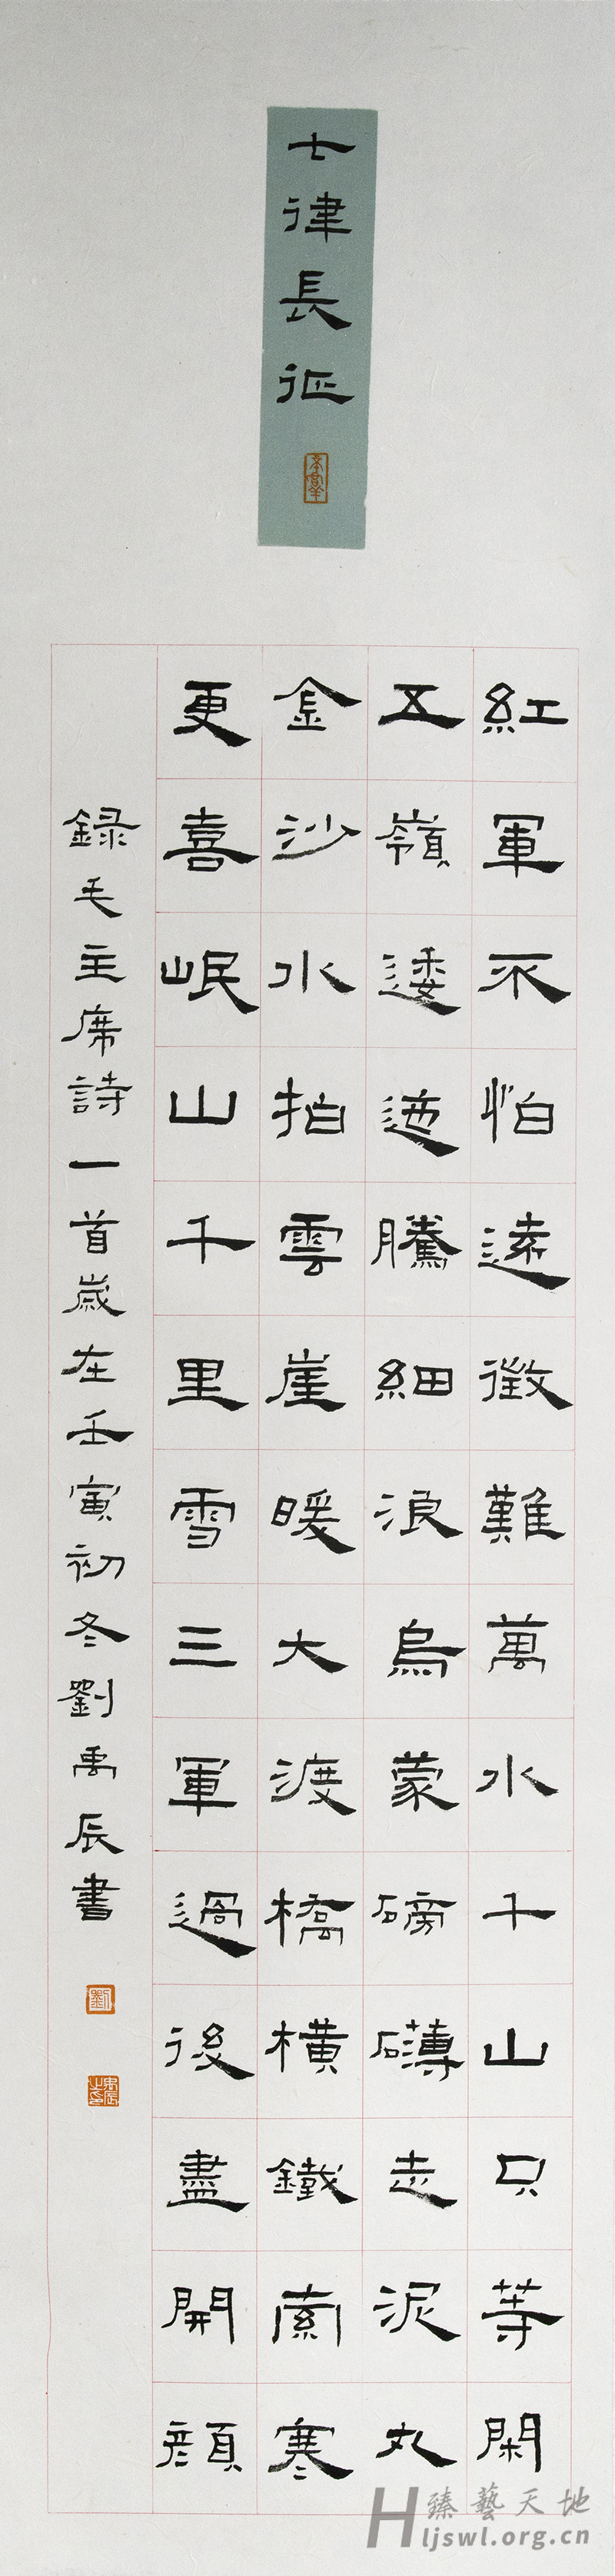 七律長征
紅軍不怕遠徵難萬水千山只等閑
五嶺逶迤騰細浪烏蒙磅礴走泥丸
金沙水拍雲崖暖大渡橋橫鐵索寒
更喜岷山千里雪三軍過後盡開顔
録毛主席詩一首歲在壬寅初冬劉禹辰書
劉
臻藝天地
Hljswl.org.cn